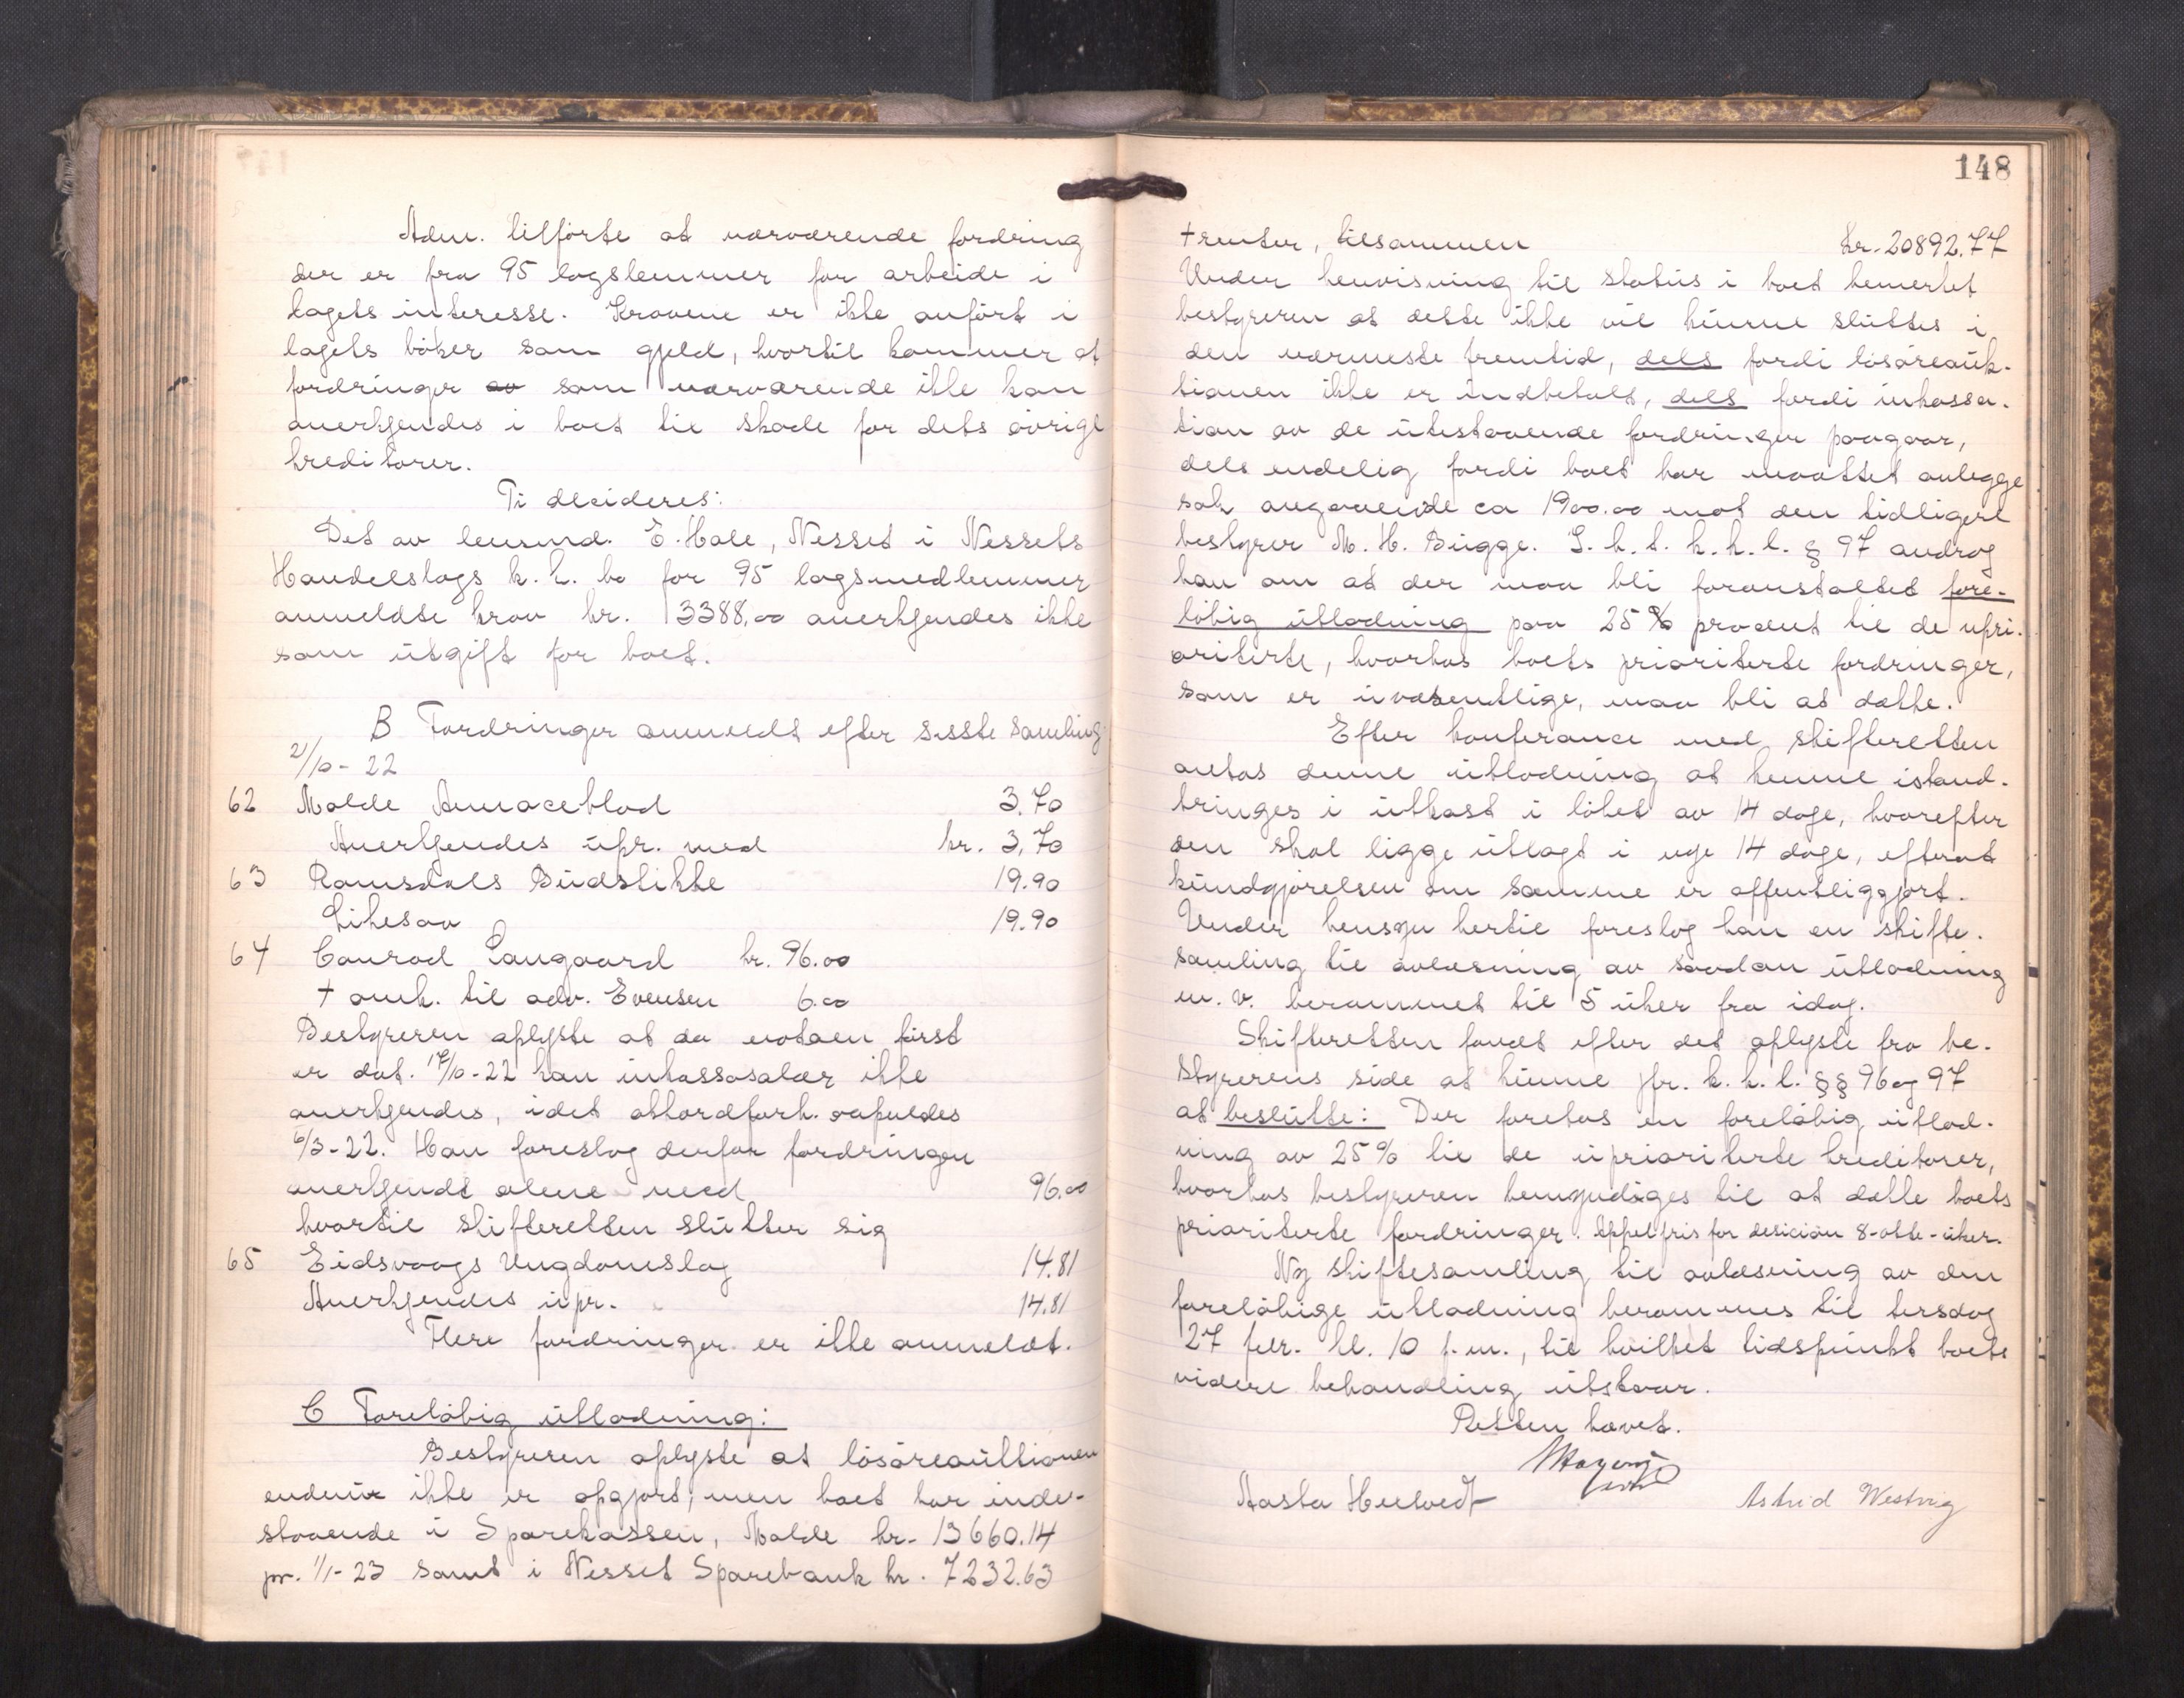 Adm. tilførte at nærværende fordring
der er fra 95 lagslemmer for arbeide i
lagets interesse. Kravene er ikke anført i
lagets bøker som gjeld, hvortil kommer at
fordringer av som nærværende ikke kan
anerkjendes i boet til skade for dets øvrige
kreditorer.
Ti decideres:
Det av lensmd. E. Hale, Nesset i Nessets
Handelslags k. k. bo for 95 lagsmedlemmer
anmeldte krav kr. 3388,00 anerkjendes ikke
som utgift for boet.
B Fordringer anmeldt efter siste samling
2/10-22
62 Molde Annonceblad 3.70
Anerkjendes upr. med kr. 3,70
63 Romsdals Budstikke 19.90
Likesaa 19.90
64 Conrad Langaard kr. 96.00
+ omk. til adv. Evensen 6.00
Bestyreren oplyste at da notaen først
er dat. 17/10-22 kan inkassosalær ikke
anerkjendes, idet akkordforh. aapnedes
6/3-22. Han foreslog derfor fordringen
anerkjendt alene med 96.00
hvortil skifteretten slutter sig
65 Eidsvaags Ungdomslag 14.81
Anerkjendes upr. 14.81
Flere fordringer er ikke anmeldt.
C Foreløbig utlodning:
Bestyreren oplyste at løsøreauktionen
endnu ikke er opgjort, men boet har inde-
staaende i Sparekassen, Molde kr. 13660.14
pr. 1/1-23 samt i Nesset Sparebank kr. 7232.63
148
+ renter, tilsammen kr. 20892.77
Under henvisning til status i boet bemerket
bestyreren at dette ikke vil kunne sluttes i
den nærmeste fremtid, dels fordi løsøreauk-
tionen ikke er indbetalt, dels fordi inkassa-
tion av de utestaaende fordringer paagaar,
dels endelig fordi boet har maattet anlegge
sak angaaende ca 1900.00 mot den tidligere
bestyrer M. H. Bugge. I. h. t. k. k. l. § 97 androg
han om at der maa bli foranstaltet fore-
løbig utlodning paa 25 % procent til de upri-
oriterte, hvorhos boets prioriterte fordringer,
som er uvæsentlige, maa bli at dække.
Efter konferance med skifteretten
antas denne utlodning at kunne istand-
bringes i utkast i løbet av 14 dage, hvorefter
den skal ligge utlagt i nye 14 dage, efterat
kundgjørelsen om samme er offentliggjort.
Under hensyn hertil foreslog han en skifte-
samling til avlæsning av saadan utlodning
m. v. berammet til 5 uker fra idag.
Skifteretten fandt efter det oplyste fra be-
styrerens side at kunne jfr. k. k. l. §§ 96 og 97
at beslutte: Der foretas en foreløbig utlod-
ning av 25% til de uprioriterte kreditorer,
hvorhos bestyreren bemyndiges til at dække boets
prioriterte fordringer. Appelfris for desicion 8-otte-uker.
Ny skiftesamling til avlæsning av den
foreløbige utlodning berammes til tirsdag
27 febr. kl. 10 f. m., til hvilket tidspunkt boets
videre behandling utstaar.
Retten hævet.
Aasta Heetvedt Astrid Westvig